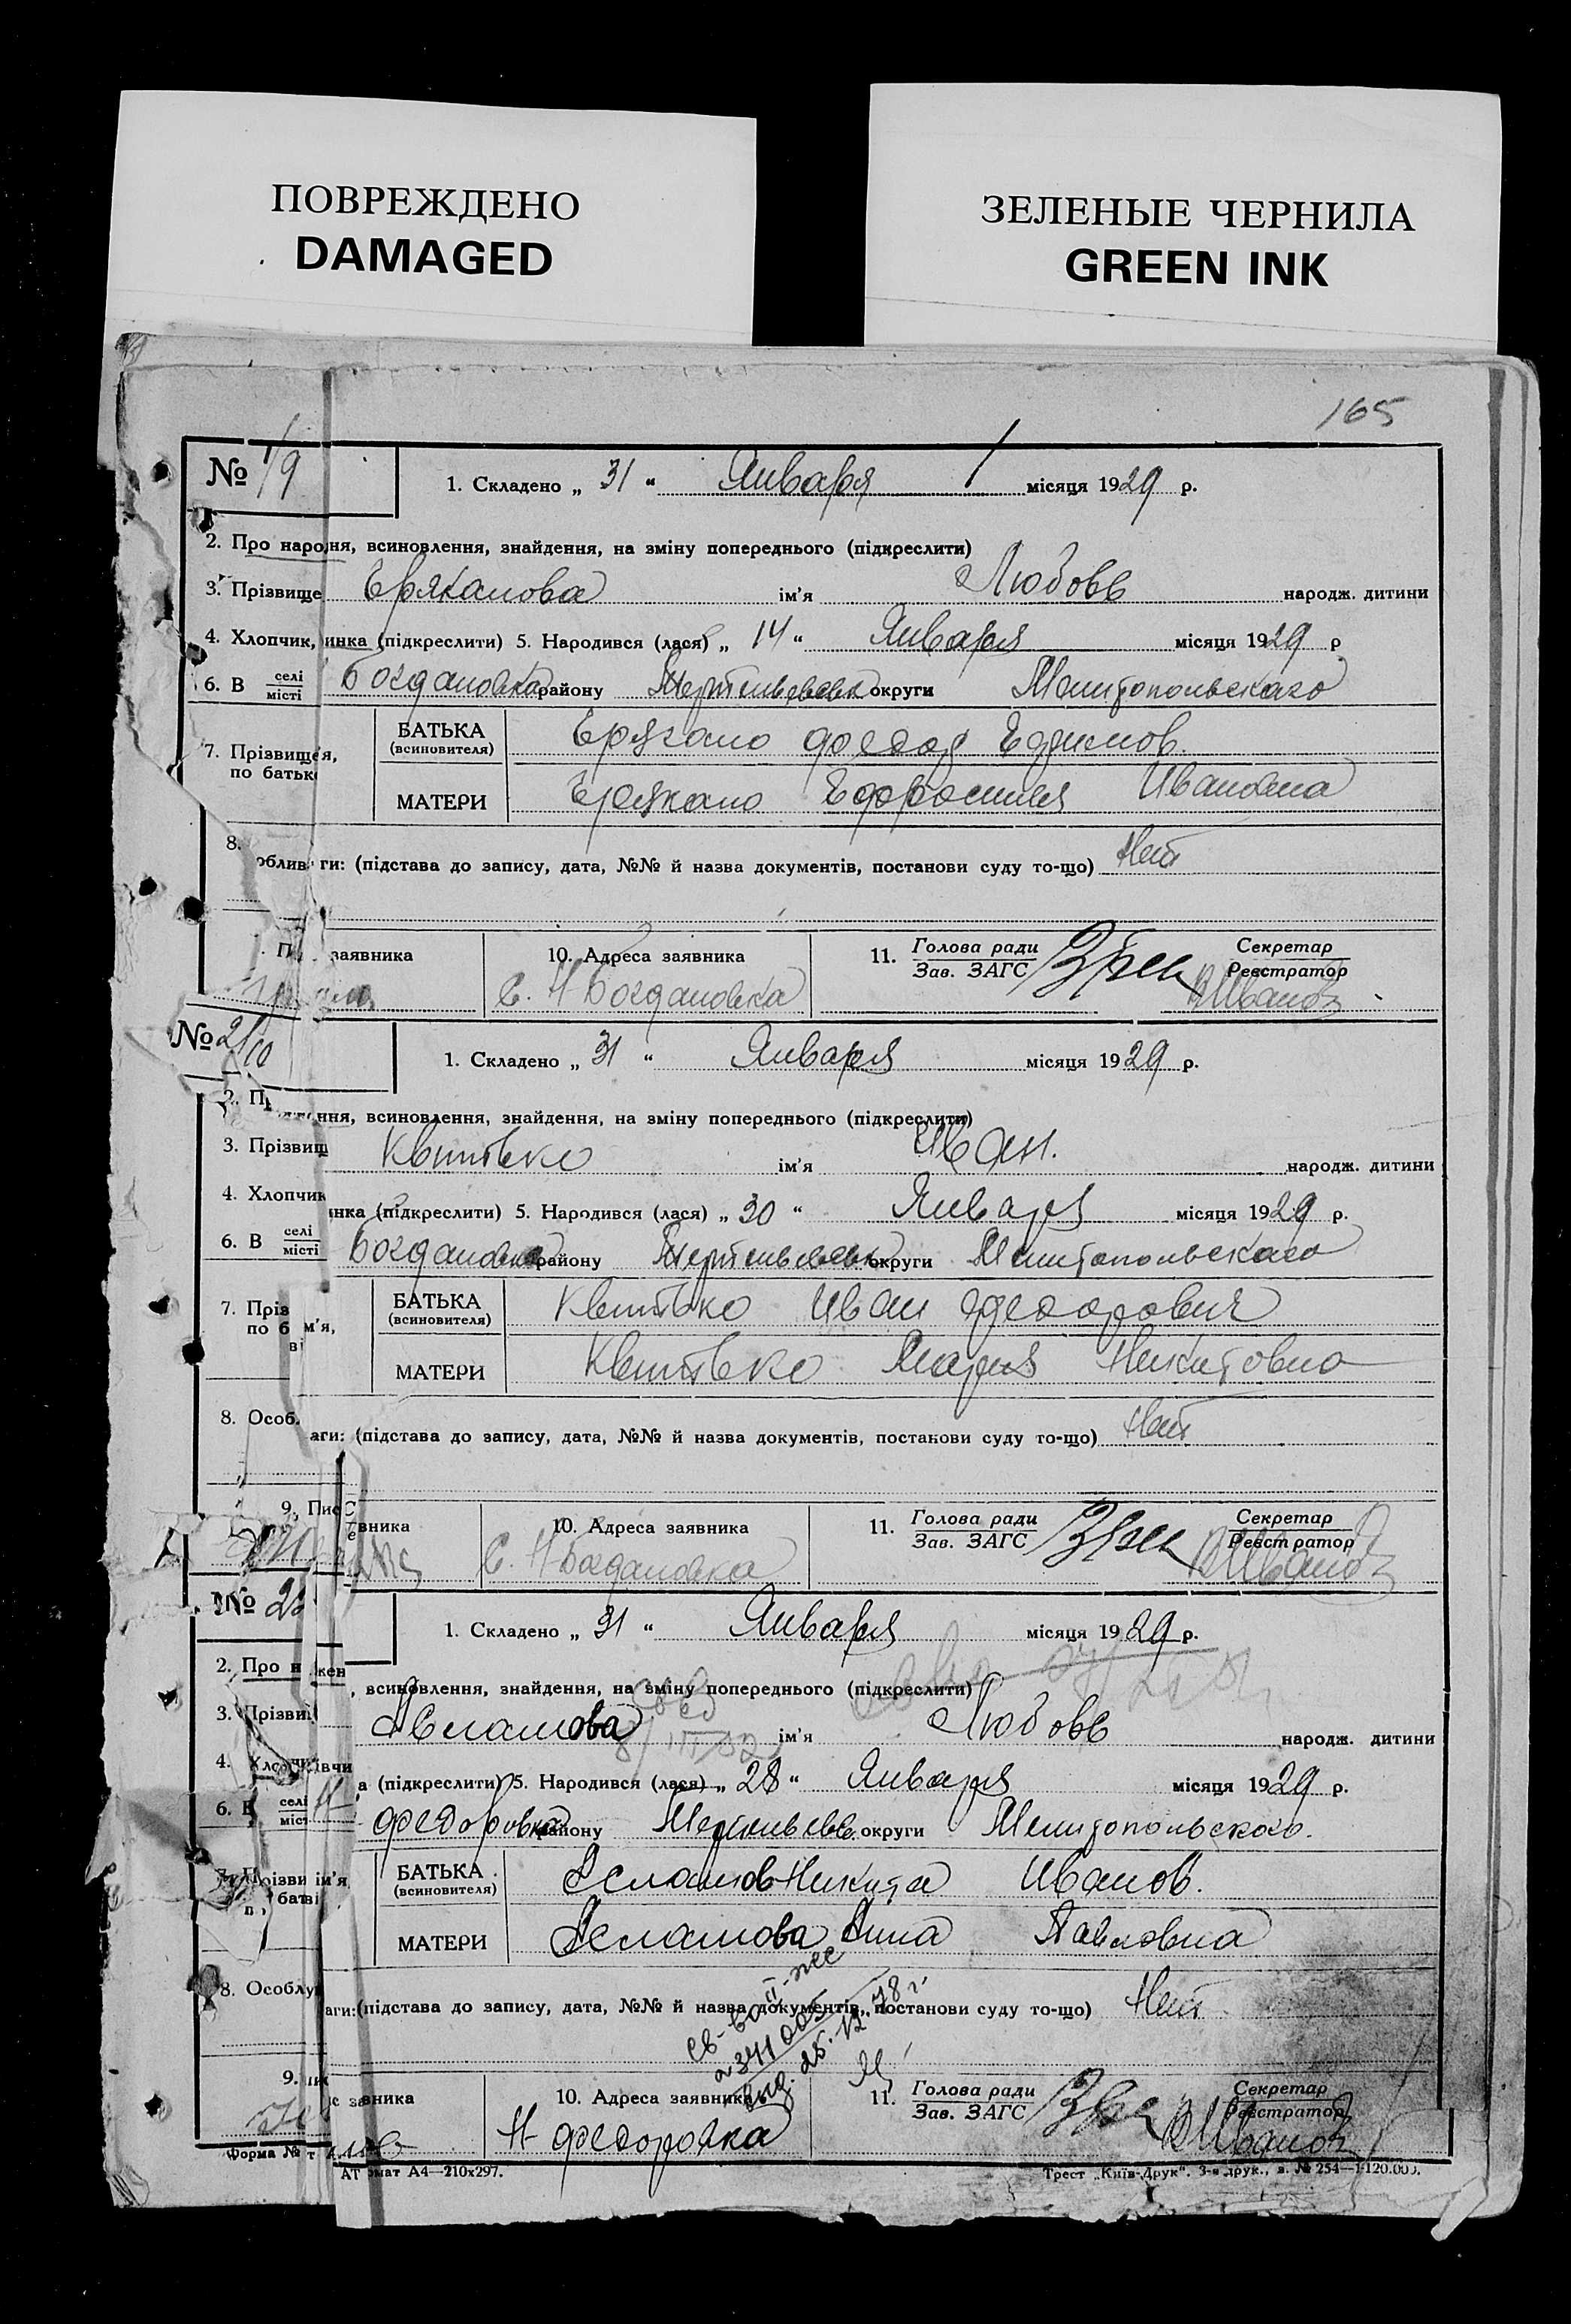 ПОВРЕЖДЕНО
DAMAGED
ЗЕЛЕНЫЕ ЧЕРНИЛА
GREEN INK
165
№ 1/9
1. Складено „ 31 “ Января місяця 1929 р.
2. Про народ ня, всиновлення, знайдення, на зміну попереднього (підкреслити)
3. Прізвище ім'я Любовь народж. дитини
4. Хлопчик, инка (підкреслити) 5. Народився (лася) „ 14 “ Января місяця 1929 р
6. В селі місті Богдановка району округи Мелитопольского
7. Прізвище я, по батьк
БАТЬКА (всиновителя)
МАТЕРИ Ивановна
8. облив ги: (підстава до запису, дата, №№ й назва документів, постанови суду то-що) Нет
заявника
10. Адреса заявника
С. Н Богдановка
11. Голова ради Зав. ЗАГС
Секретар Реєстратор
№ 2/10
1. Складено „ 31 “ Января місяця 1929 р.
2. Пр ння, всиновлення, знайдення, на зміну попереднього (підкреслити)
3. Прізвищ Квитько ім'я Иван. народж. дитини
4. Хлопчик инка (підкреслити) 5. Народився (лася) „ 30 “ Января місяця 1929 р.
6. В селі місті Богдановка району округи Мелитопольского
7. Прізв м'я, по б
БАТЬКА (всиновителя) Квитько Иван Федорович
МАТЕРИ Квитько Мария Никитовна
8. Особ. аги: (підстава до запису, дата, №№ й назва документів, постанови суду то-що) Нет
9. Пис вника
10. Адреса заявника
С. Н Богдановка
11. Голова ради Зав. ЗАГС
Секретар Реєстратор
№
1. Складено „ 31 “ Января місяця 1929 р.
2. Про н жен , всиновлення, знайдення, на зміну попереднього (підкреслити)
3. Прізви ім'я Любовь народж. дитини
4. Хлопчи вчи а (підкреслити) 5. Народився (лася) „ 28 “ Января місяця 1929 р.
6. В селі міст Н Федоровка району округи Мелитопольского.
7. Прізви ім'я
БАТЬКА (всиновителя) Асламов Никита Иванов.
МАТЕРИ Асламова Анна Павловна
8. Особлу аги: (підстава до запису, дата, №№ й назва документів, постанови суду то-що) Нет
св-во II-ЖС
341005
выд. 25. 12. 78 г.
9. с заявника
10. Адреса заявника
Н Федоровка
11. Голова ради Зав. ЗАГС
Секретар Реєстратор
Форма №
мат А4—210х297.
Трест „Київ-Друк“. 3-я друк., з. № 254—1-120.000.